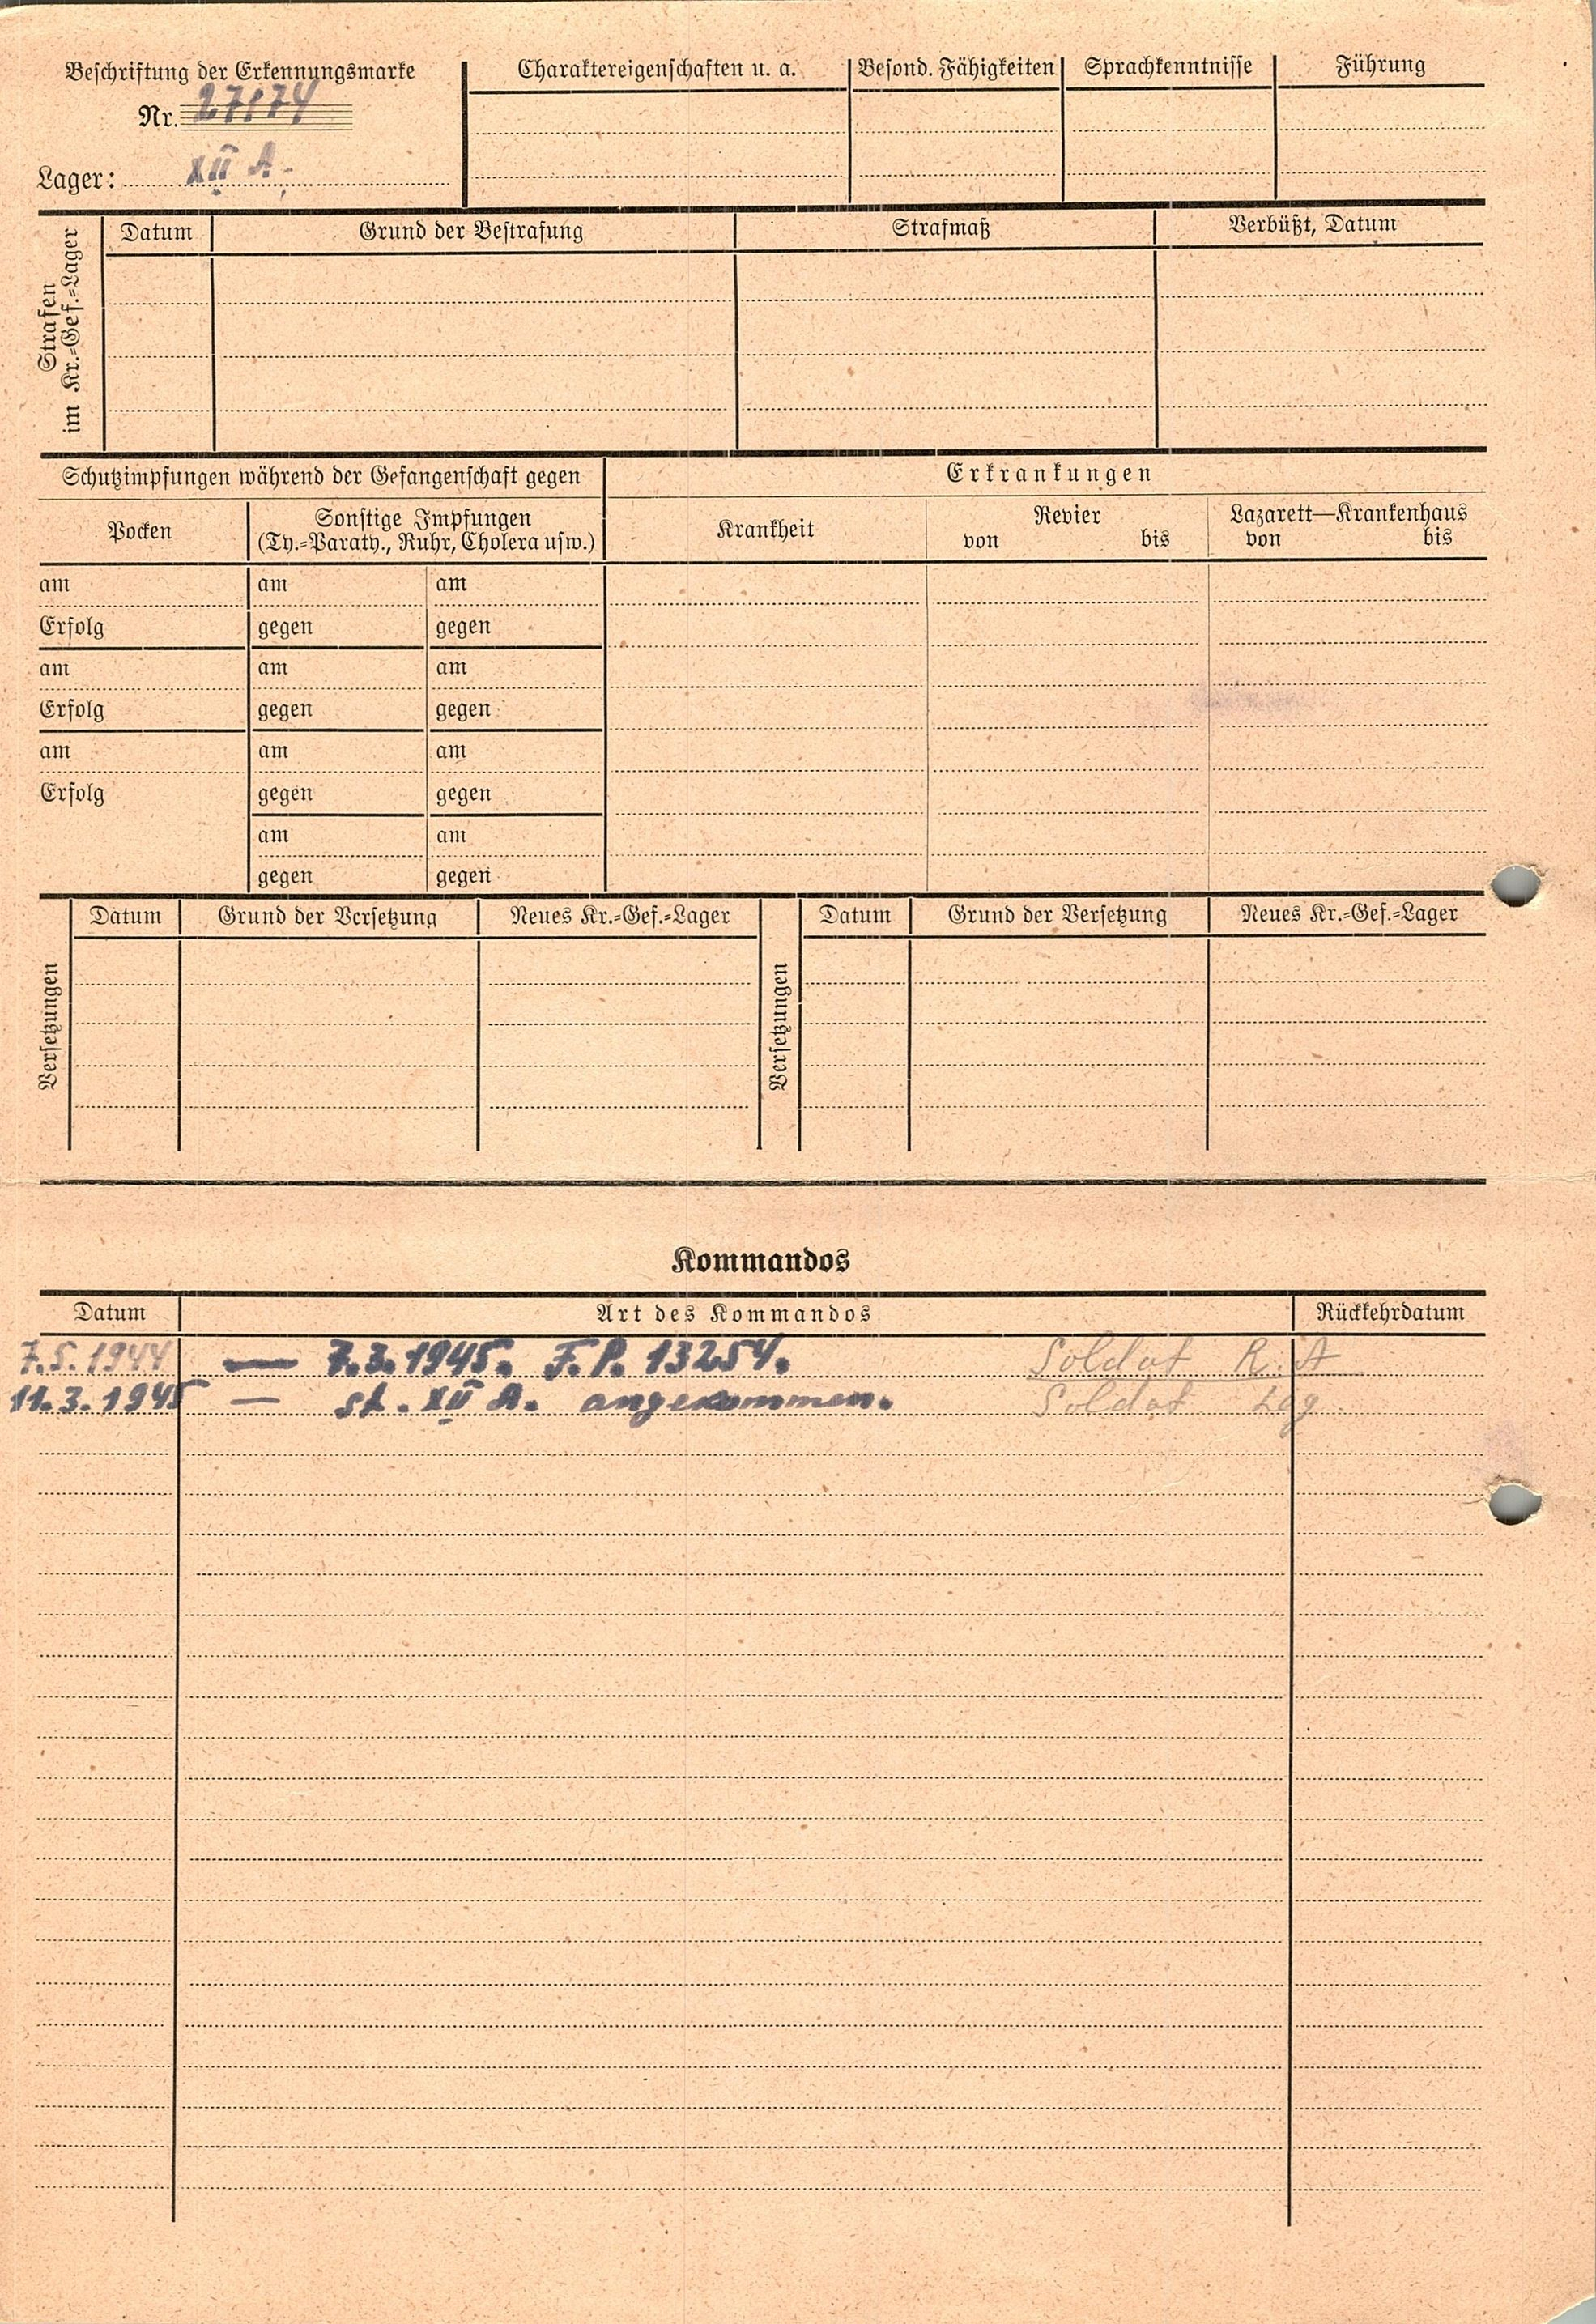 Beschriftung der Erkennungsmarke
Nr. 27174
Lager: XII A.
Charaktereigenschaften u. a.
Besond. Fähigkeiten
Sprachkenntnisse
Führung
Strafen
im Kr.=Gef.=Lager
Datum
Grund der Bestrafung
Strafmaß
Verbüßt, Datum
Schutzimpfungen während der Gefangenschaft gegen
Erkrankungen
Pocken
Sonstige Impfungen
(Ty.=Paraty., Ruhr, Cholera usw.)
Krankheit
Revier
von bis
Lazarett—Krankenhaus
von bis
am am am
Erfolg gegen gegen
am am am
Erfolg gegen gegen
am am am
Erfolg gegen gegen
am am
gegen gegen
Versetzungen
Datum
Grund der Versetzung
Neues Kr.=Gef.=Lager
Versetzungen
Datum
Grund der Versetzung
Neues Kr.=Gef.=Lager
Kommandos
Datum
Art des Kommandos
Rückkehrdatum
7.5.1944 — 7.3.1945. F.P. 13254. Soldat R. A
11.3.1945 — st. XII A. angekommen. Soldat Lag.